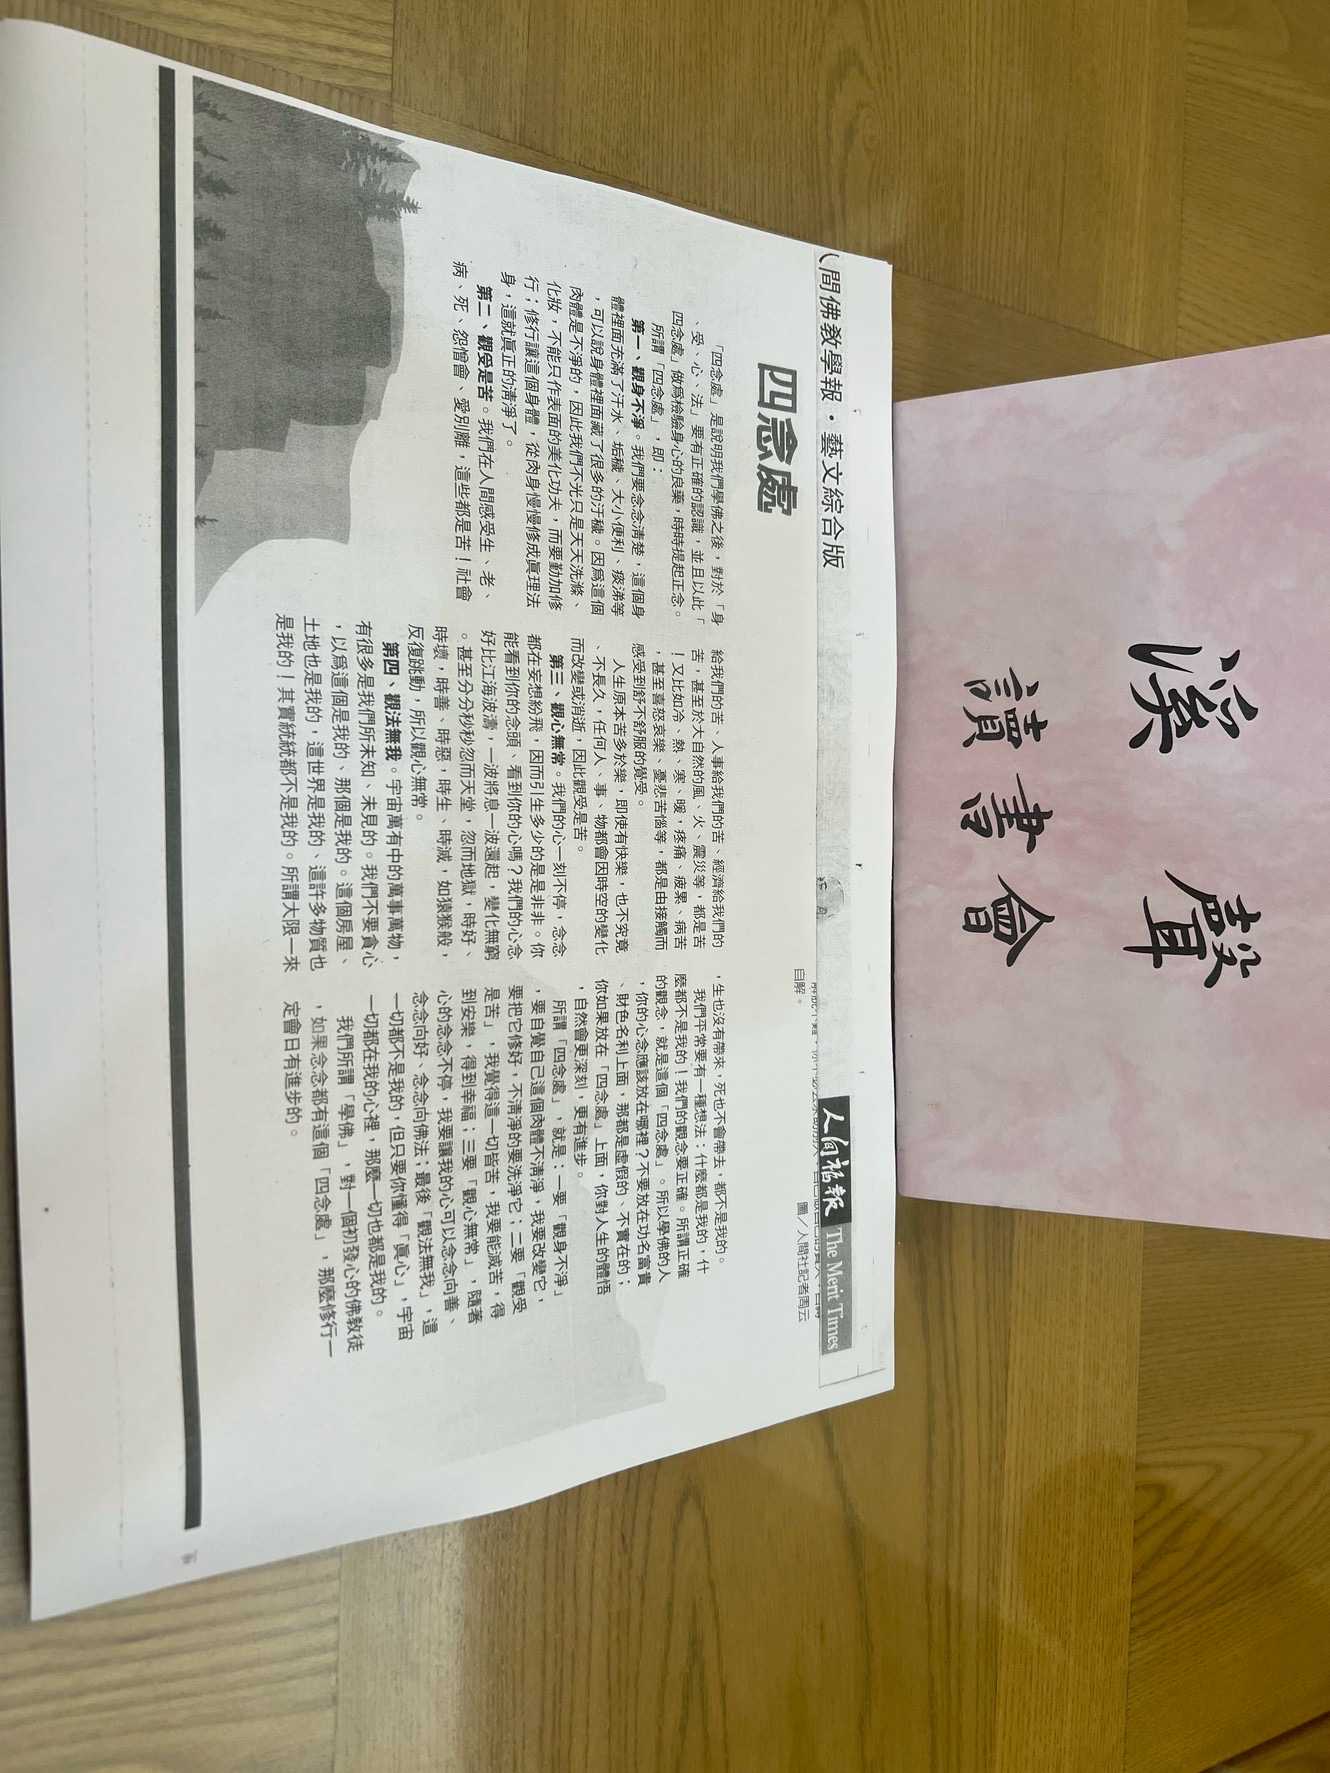 溪聲
讀書會
間佛教學報・藝文綜合版
人間福報 The Merit Times
圖／人間社記者周云
自解。
四念處
「四念處」是說明我們學佛之後，對於「身
、受、心、法」要有正確的認識，並且以此「
四念處」做為檢驗身心的良藥，時時提起正念。
所謂「四念處」，即：
第一、觀身不淨。我們要念念清楚，這個身
體裡面充滿了汗水、垢穢、大小便利、痰涕等
，可以說身體裡面藏了很多的汙穢。因為這個
肉體是不淨的，因此我們不光只是天天洗滌、
化妝，不能只作表面的美化功夫，而要勤加修
行；修行讓這個身體，從肉身慢慢修成真理法
身，這就真正的清淨了。
第二、觀受是苦。我們在人間感受生、老、
病、死、怨憎會、愛別離，這些都是苦！社會
給我們的苦、人事給我們的苦、經濟給我們的
苦，甚至於大自然的風、火、震災等，都是苦
！又比如冷、熱、寒、暖，疼痛、疲累、病苦
，甚至喜怒哀樂、憂悲苦惱等，都是由接觸而
感受到舒不舒服的覺受。
人生原本苦多於樂，即使有快樂，也不究竟
、不長久，任何人、事、物都會因時空的變化
而改變或消逝，因此觀受是苦。
第三、觀心無常。我們的心一刻不停，念念
都在妄想紛飛，因而引生多少的是是非非。你
能看到你的念頭、看到你的心嗎？我們的心念
好比江海波濤，一波將息一波還起，變化無窮
。甚至分分秒秒忽而天堂，忽而地獄，時好、
時壞，時善、時惡，時生、時滅，如猿猴般，
反復跳動，所以觀心無常。
第四、觀法無我。宇宙萬有中的萬事萬物，
有很多是我們所未知、未見的。我們不要貪心
，以為這個是我的、那個是我的。這個房屋、
土地也是我的，這世界是我的、這許多物質也
是我的！其實統統都不是我的。所謂大限一來
，生也沒有帶來，死也不會帶去，都不是我的。
我們平常要有一種想法：什麼都是我的，什
麼都不是我的！我們的觀念要正確。所謂正確
的觀念，就是這個「四念處」。所以學佛的人
，你的心念應該放在哪裡？不要放在功名富貴
、財色名利上面，那都是虛假的、不實在的；
你如果放在「四念處」上面，你對人生的體悟
，自然會更深刻，更有進步。
所謂「四念處」，就是：一要「觀身不淨」
，要自覺自己這個肉體不清淨，我要改變它，
要把它修好，不清淨的要洗淨它；二要「觀受
是苦」，我覺得這一切皆苦，我要能滅苦，得
到安樂，得到幸福；三要「觀心無常」，隨著
心的念念不停，我要讓我的心可以念念向善、
念念向好、念念向佛法；最後「觀法無我」，這
一切都不是我的，但只要你懂得「真心」，宇宙
一切都在我的心裡，那麼一切也都是我的。
我們所謂「學佛」，對一個初發心的佛教徒
，如果念念都有這個「四念處」，那麼修行一
定會日有進步的。